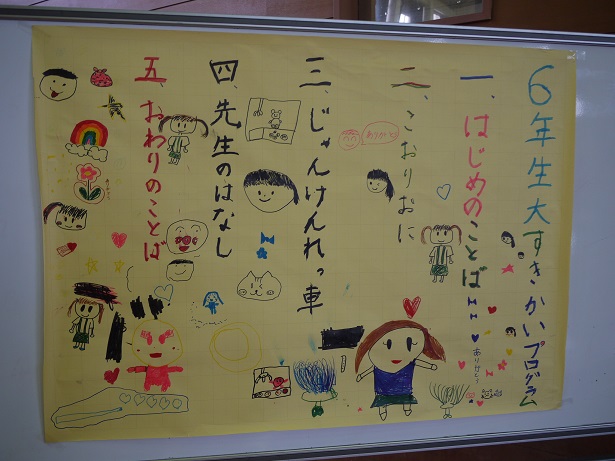 6年生大すきかいプログラム
一、はじめのことば
二、こおりおに
三、じゃんけんれっ車
四、先生のはなし
五、おわりのことば
ありがとう